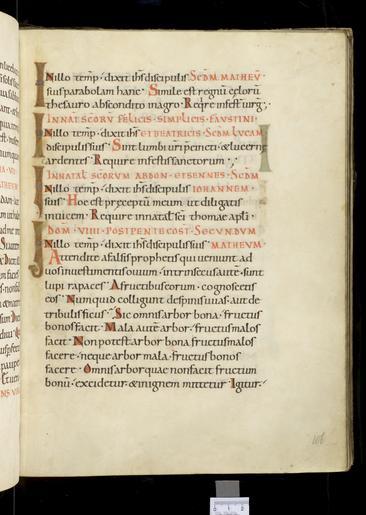 In illo temp̄ · dixit ihs discipulis Scd̄m Matheū ·
suis parabolam hanc · Simile est regnū cęlorū
thesauro abscondito in agro · Reqr̄e in fest̄ virḡ
In nat̄ scorū felicis · simplicis · faustini ·
In illo temp̄ · dixit ihs et beatricis · Scd̄m Lucam
discipulis suis · Sint lumbi vr̄i pcincti · & lucernę
ardentes · Require in festis sanctorum ·
In natal scorum abdon · et sennes · Scd̄m
In illo temp̄ · dixit ihs discipulis Iohannem ·
suis · Hoc est pręceptū meum ut diligatis
invicem · Require in natal sc̄i thomae apl̄i
Dom̄ · VIIII · post pentecost · Secundum
In illo temp̄ · dixit ihs discipulis suis · Matheum ·
Attendite a falsis prophetis qui veniunt ad
vos in vestimentis ovium · intrinsecus autē · sunt
lupi rapaces · A fructibus eorum · cognoscetis
eos · Numquid colligunt de spinis uvas · aut de
tribulis ficus · Sic omnis arbor bona · fructus
bonos facit · Mala autē arbor · fructus malos
facit · Non potest arbor bona fructus malos
facere · neque arbor mala · fructus bonos
facere · Omnis arbor quae non facit fructum
bonū · excidetur & in ignem mittetur · Igitur